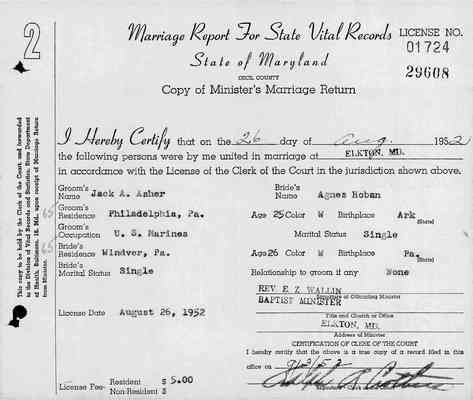 2
Marriage Report For State Vital Records
LICENSE NO.
01724
State of Maryland
29608
CECIL COUNTY
Copy of Minister's Marriage Return
This copy to be held by the Clerk of the Court, and forwarded
to the Division of Vital Records and Statistics, State Department
of Health, Baltimore, 18, Md., upon receipt of Marriage Return
from Minister.
I Hereby Certify that on the 26 day of Aug. 1952
the following persons were by me united in marriage at ELKTON, MD.
in accordance with the License of the Clerk of the Court in the jurisdiction shown above.
Groom's Name Jack A. Asher
Bride's Name Agnes Hoban
Groom's Residence Philadelphia, Pa.
Age 25 Color W Birthplace Ark
(State)
Groom's Occupation U. S. Marines
Marital Status Single
Bride's Residence Windver, Pa.
Age 26 Color W Birthplace Pa.
(State)
Bride's Marital Status Single
Relationship to groom if any None
REV. E. Z. WALLIN
Signature of Officiating Minister
BAPTIST MINISTER
Title and Church or Office
License Date August 26, 1952
ELKTON, MD.
Address of Minister
CERTIFICATION OF CLERK OF THE COURT
I hereby certify that the above is a true copy of a record filed in this
office on 9/3/52
License Fee- Resident $ 5.00
Non-Resident $